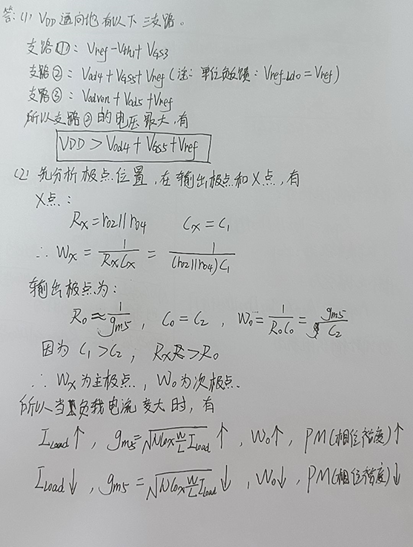 答:(1) VDD 通向地有以下三支路。
支路①: Vref - Vth1 + VGS3
支路②: Vod4 + VGS5 + Vref (注: 单位负反馈: Vref_ldo = Vref)
支路③: Vod + Vod5 + Vref
所以支路②的电压最大,有
VDD > Vod4 + VGS5 + Vref
(2) 先分析极点位置,在输出极点和X点,有
X点:
Rx = ro2 || ro4 Cx = C1
∴ Wx = 1/(RxCx) = 1/((ro2||ro4)C1)
输出极点为:
Ro ≈ 1/gm5 , Co = C2 , Wo = 1/(RoCo) = gm5/C2
因为 C1 > C2 , Rx > Ro
∴ Wx为主极点, Wo为次极点.
所以当负载电流变大时,有
ILoad↑ , gm5 = √(μCox W/L ILoad) ↑ , Wo↑ , PM(相位裕度)↑
ILoad↓ , gm5 = √(μCox W/L ILoad) ↓ , Wo↓ , PM(相位裕度)↓